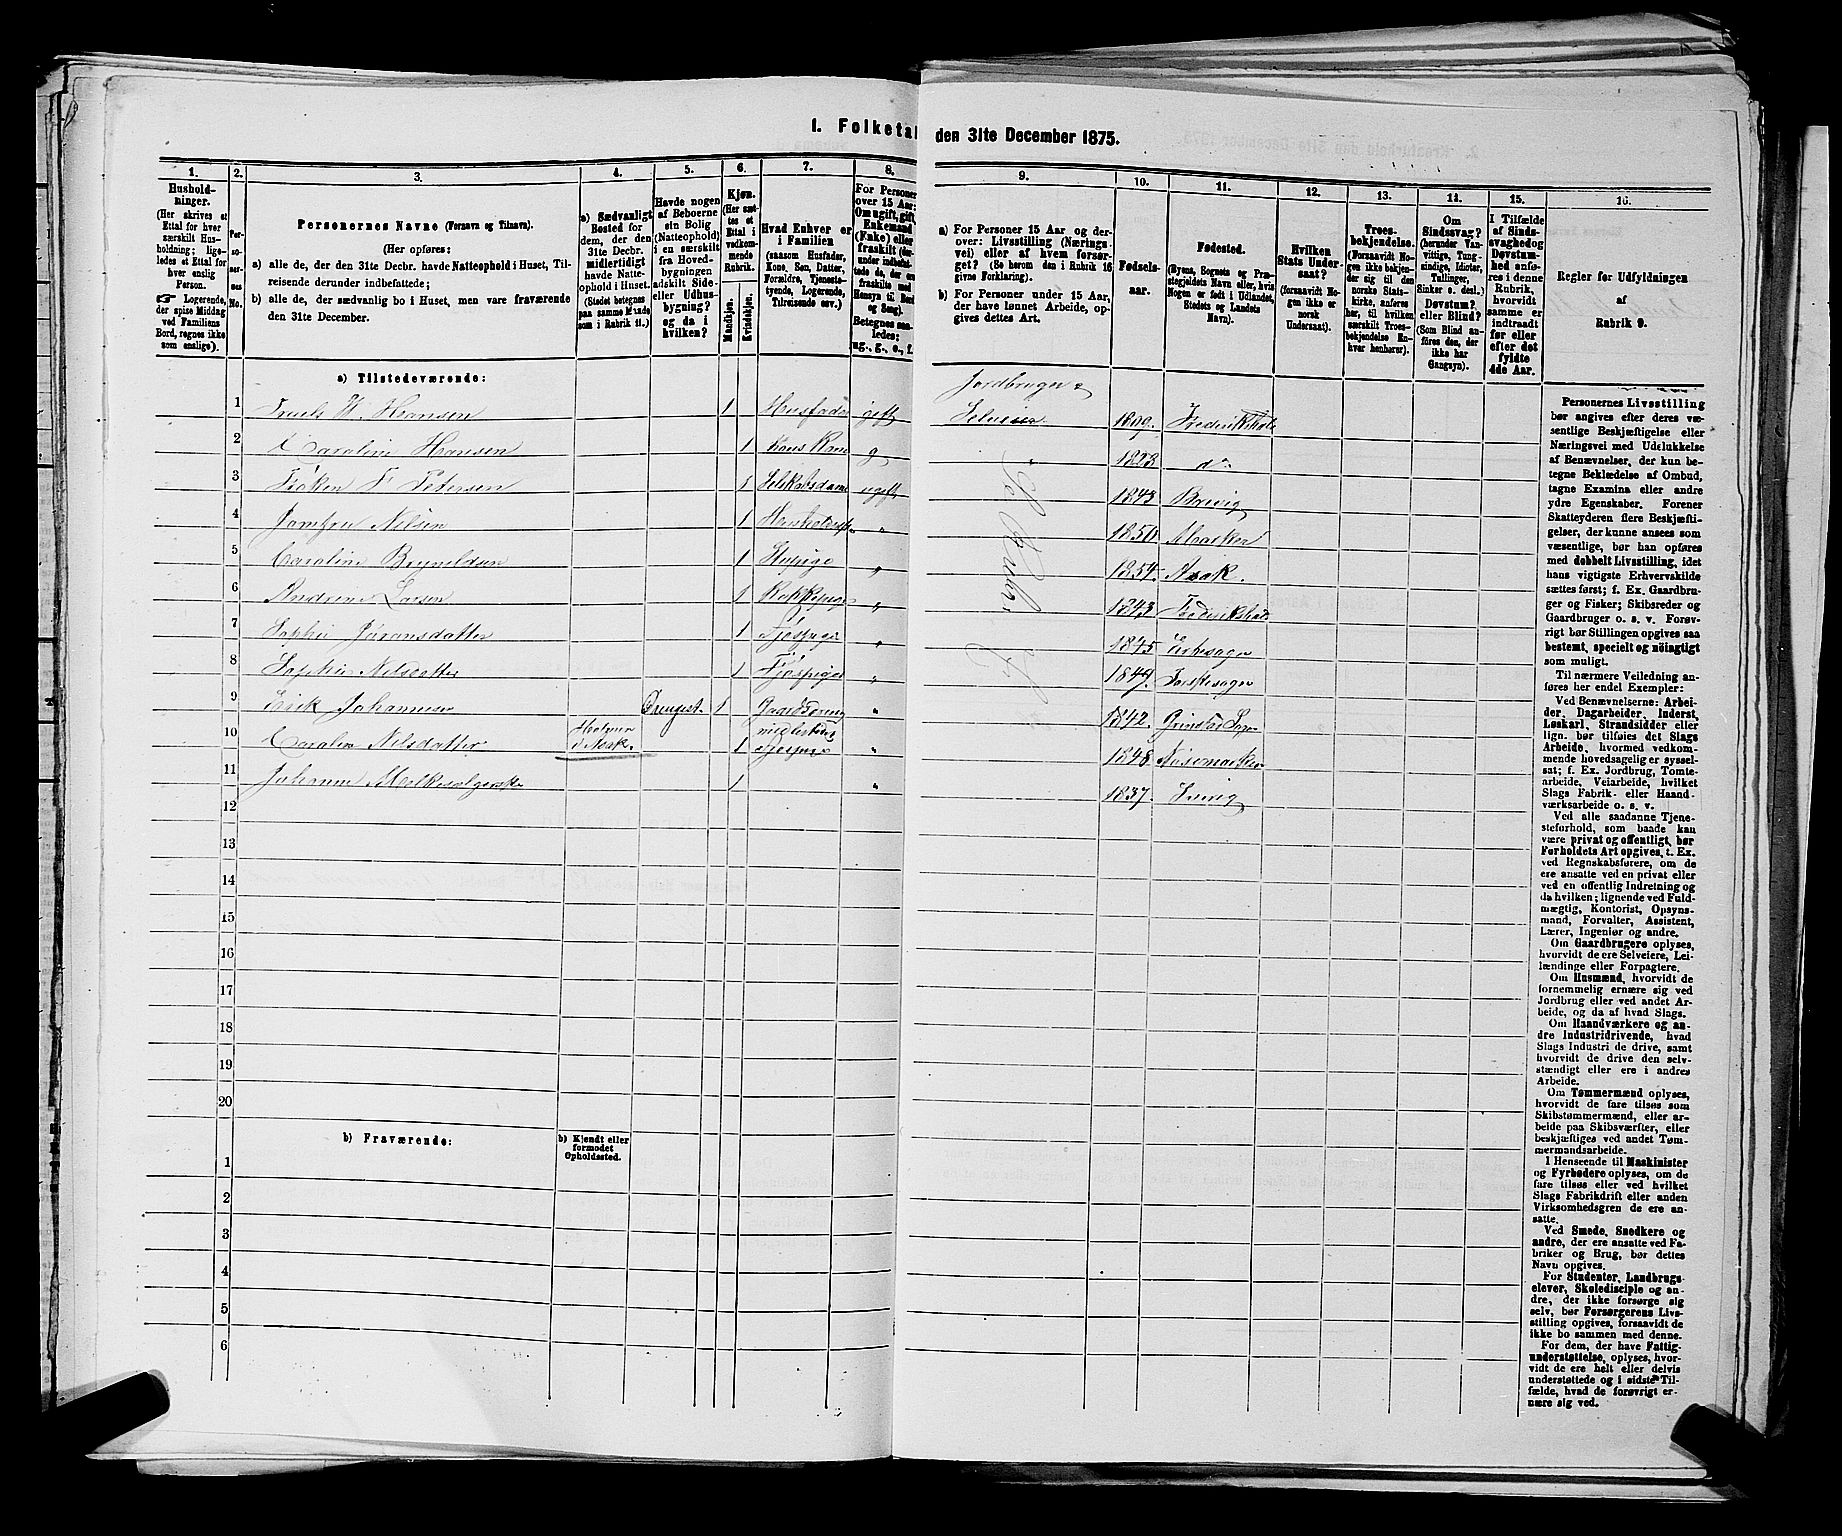 1. Folketal
den 31te December 1875.
1.
Hushold-
ninger.
(Her skrives et
Ettal for hver
særskilt Hus-
holdning; lige-
ledes et Ettal for
hver enslig
Person.
☞ Logerende,
der spise Middag
ved Familiens
Bord, regnes ikke
som enslige).
2.
Per-
so-
ner-
nes
No.
3.
Personernes Navne (Fornavn og Tilnavn).
(Her opføres:
a) alle de, der den 31te Decbr. havde Natteophold i Huset, Til-
reisende derunder indbefattede;
b) alle de, der sædvanlig bo i Huset, men vare fraværende
den 31te December.
4.
a) Sædvanligt
Bosted for
dem, der den
31te Decbr.
midlertidigt
havde Natte-
ophold i Huset.
(Stedet betegnes
paa samme Maade
som i Rubrik 11.)
5.
Havde nogen
af Beboerne
sin Bolig
(Natteophold)
i en særskilt
fra Hoved-
bygningen
adskilt Side-
eller Udhus-
bygning?
og da i
hvilken?
6.
Kjøn.
(Her sæt-
tes et
Ettal i
vedkom-
mende
Rubrik.
Mandkjøn.
Kvindekjøn.
7.
Hvad Enhver er
i Familien
(saasom Husfader,
Kone, Søn, Datter,
Forældre, Tjeneste-
tyende, Logerende,
Tilreisende osv.)
8.
For Personer
over 15 Aar:
Om ugift, gift,
Enkemand
(Enke) eller
fraskilt
Betegnes saa-
ledes:
ug., g., e., f.
9.
a) For Personer 15 Aar og der-
over: Livsstilling (Nærings-
vei) eller af hvem forsør-
get? (Se herom den i Rubrik 16
givne Forklaring).
b) For Personer under 15 Aar,
der have lønnet Arbeide, op-
gives dettes Art.
10.
Fødsels-
aar.
11.
Fødested.
(Byens, Sognets og Præ-
stegjeldets Navn eller, hvis
Nogen er født i Udlandet,
Stedets og Landets
Navn).
12.
Hvilken
Stats Under-
saat?
(forsaavidt No-
gen ikke er
norsk
Undersaat).
13.
Troes-
bekjendelse.
(Forsaavidt No-
gen ikke bekjen-
der sig til den
norske Stats-
kirke, anføres
her, til hvilken
særskilt Troes-
bekjendelse En-
hver henhører).
14.
Om
Sindssvag?
(herunder Van-
vittige, Tung-
sindige, Idioter,
Tullinger,
Sinker o. desl.)
Døvstum?
eller Blind?
(Som Blind an-
føres den, der
ikke har
Gangsyn).
15.
I Tilfælde
af Sinds-
svaghed og
Døvstum-
hed anfø-
res i denne
Rubrik,
hvorvidt
samme er
indtraadt
før eller
efter det
fyldte
4de Aar.
16.
Regler for Udfyldningen
af
Rubrik 9.
a) Tilstedeværende:
Jordbruger &
1 Truels H. Hansen 1 Husfader gift Selveier 1809. Frederikshald
2 Caroline Hansen 1 hans Kone g 1823 do
3 Frøken F Petersen 1 Selskabsdame ugift 1843 Brevig
4 Jomfru Nilsen 1 " 1850 Marker
5 Caroline Bryneldsen 1 " 1854. Asak.
6 Andrine Larsen 1 Kokkepige " 1843 Frederikshald
7 Sophie Jøransdatter 1 Tjepige " 1845
8 Sophie Nilsdatter 1 Tjepige " 1849.
9 Erik Johannesen Drengest. 1 Gaardsdreng " 1842.
10 Caroline Nilsdatter i Asak. 1 midlertidig Tjepige " 1848
11 Johanne 1 " 1837.
12
13
14
15
16
17
18
19
20
b) Fraværende:
b) Kjendt eller
formodet
Opholdssted.
1
2
3
4
5
6
Personernes Livsstilling
bør angives efter deres væ-
sentlige Beskjæftigelse eller
Næringsvei med Udelukkelse
af Benævnelser, der kun be-
tegne Beklædelse af Ombud,
tagne Examina eller andre
ydre Egenskaber. Forener
Skatteyderen flere Beskjæfti-
gelser, der kunne ansees som
væsentlige, bør han opføres
med dobbelt Livsstilling, idet
hans vigtigste Erhvervskilde
sættes først; f. Ex. Gaardbru-
ger og Fisker; Skibsreder og
Gaardbruger o. s. v. Forøv-
rigt bør Stillingen opgives saa
bestemt, specielt og nöiagtigt
som muligt.
Til nærmere Veiledning an-
føres her endel Exempler:
Ved Benævnelserne: Arbei-
der, Dagarbeider, Inderst,
Løskarl, Strandsidder eller
lign. bør tilføies det Slags
Arbeide, hvormed vedkom-
mende hovedsagelig er syssel-
sat; f. Ex. Jordbrug, Tomte-
arbeide, Veiarbeide, hvilket
Slags Fabrik- eller Haand-
værksarbeide o. s. v.
Ved alle saadanne Tjene-
steforhold, som baade kan
være privat og offentligt, bør
Forholdets Art opgives, t. Ex.
ved Regnskabsførere, om de
ere ansatte ved en privat eller
ved en offentlig Indretning og
da hvilken; lignende ved Fuld-
mægtig, Kontorist, Opsyns-
mand, Forvalter, Assistent,
Lærer, Ingeniør og andre.
Om Gaardbrugere oplyses,
hvorvidt de ere Selveiere, Lei-
lændinge eller Forpagtere.
Om Husmænd, hvorvidt de
fornemmelig ernære sig ved
Jordbrug eller ved andet Ar-
beide, og da af hvad Slags.
Om Haandværkere og an-
dre Industridrivende, hvad
Slags Industri de drive, samt
hvorvidt de drive den selv-
stændigt eller ere i andres
Arbeide.
Om Tømmermænd oplyses,
hvorvidt de fare tilsøs som
Skibstømmermænd, eller ar-
beide paa Skibsværfter, eller
beskjæftiges ved andet Tøm-
mermandsarbeide.
I Henseende til Maskinister
og Fyrbødere oplyses, om de
fare tilsøs eller ved hvilket
Slags Fabrikdrift eller anden
Virksomhedsgren de ere an-
satte.
Ved Smede, Snedkere og
andre, der ere ansatte ved Fa-
briker og Brug, bør dettes
Navn opgives.
For Studenter, Landbrugs-
elever, Skoledisciple og an-
dre, der ikke forsørge sig
selv, bør Forsørgerens Livs-
stilling opgives, forsaavidt de
ikke bo sammen med denne.
For dem, der have Fattig-
understøttelse, oplyses, hvor-
vidt de ere helt eller delvis
understøttede og i sidste Til-
fælde, hvad de forøvrigt er-
nære sig ved.